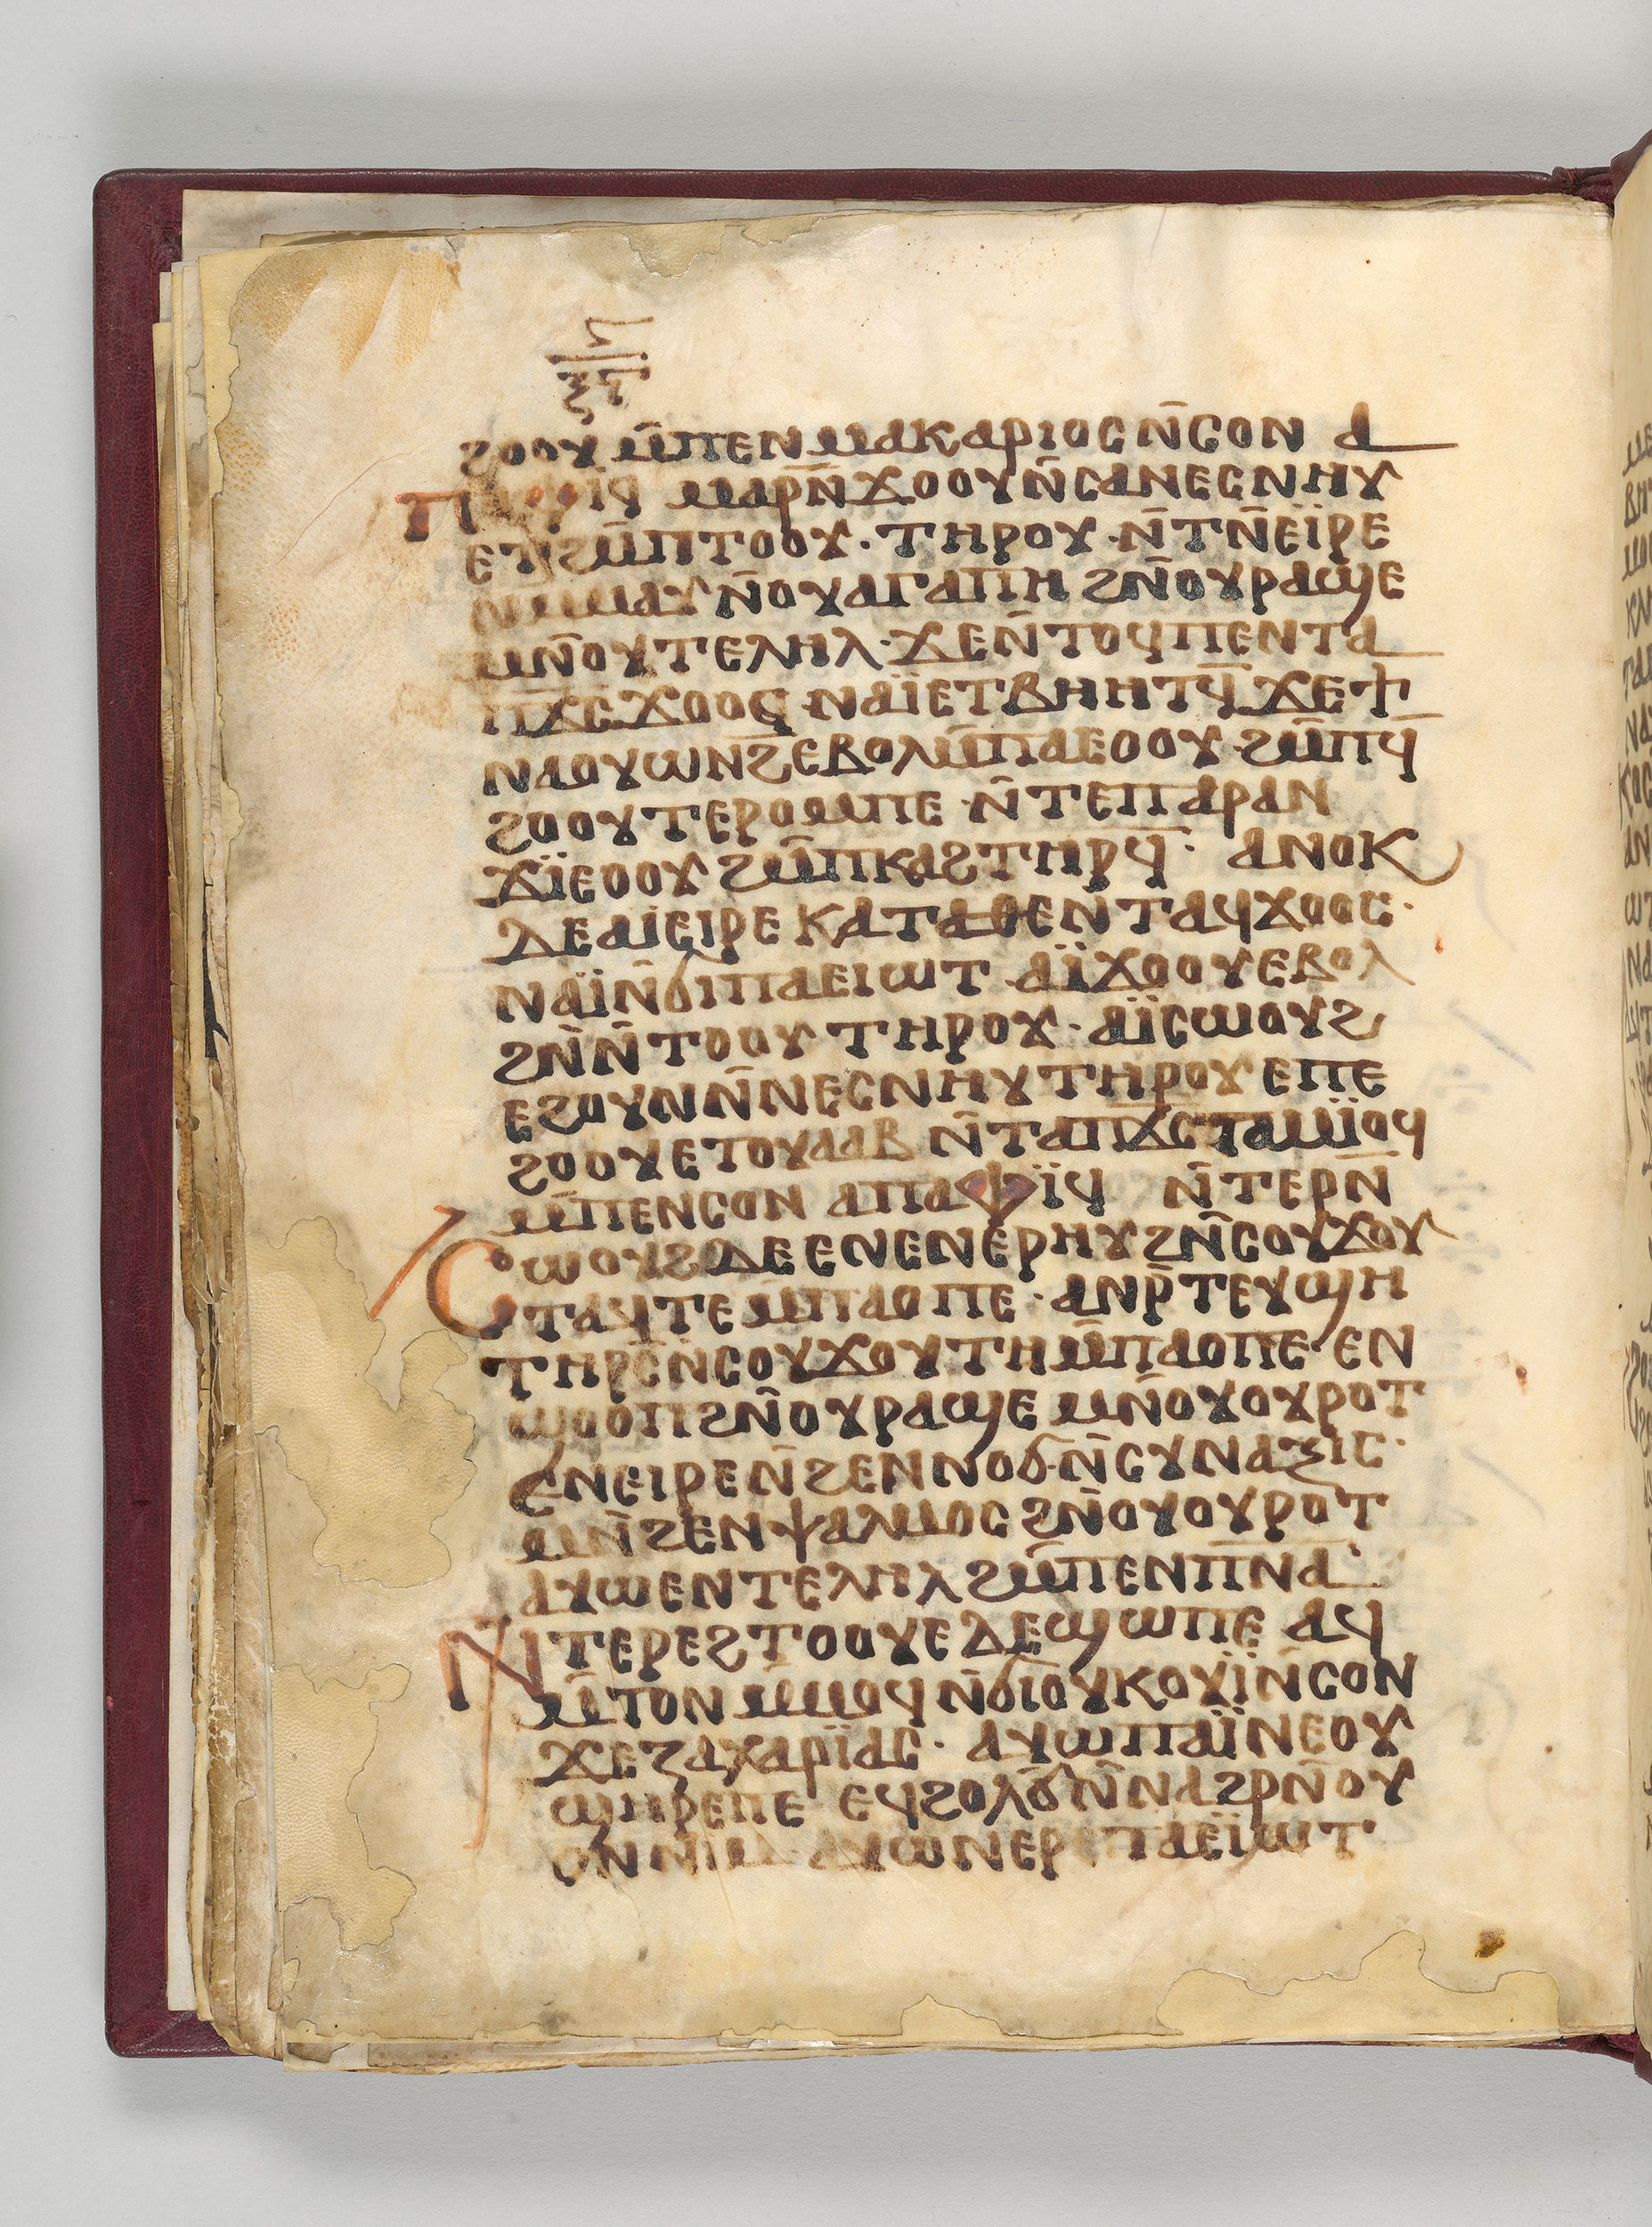 ⲝⲋ
ϩⲟⲟⲩ ⲙ̄ⲡⲉⲛⲙⲁⲕⲁⲣⲓⲟⲥ ⲛ̄ⲥⲟⲛ ⲁ
ⲙⲁⲣⲛ̄ϫⲟⲟⲩ ⲛ̄ⲥⲁⲛⲉⲥⲛⲏⲩ
ⲉⲧϩⲙ̄ⲡⲧⲟⲟⲩ · ⲧⲏⲣⲟⲩ · ⲛ̄ⲧⲛ̄ⲉⲓ̈ⲣⲉ
ⲛⲙⲙⲁⲩ ⲛ̄ⲟⲩⲁⲅⲁⲡⲏ ϩⲛ̄ⲟⲩⲣⲁϣⲉ
ⲙⲛ̄ⲟⲩⲧⲉⲗⲏⲗ · ϫⲉⲛ̄ⲧⲟϥⲡⲉⲛⲧⲁ
ⲡⲭ̄ⲥ̄ϫⲟⲟⲥ ⲛⲁⲓ̈ⲉⲧⲃⲏⲏⲧϥ̄ ϫⲉϯ
ⲛⲁⲟⲩⲱⲛϩ̄ⲉⲃⲟⲗⲙ̄ⲡⲁⲉⲟⲟⲩ · ϩⲙ̄ⲡϥ̄
ϩⲟⲟⲩⲧⲉⲣⲟⲙⲡⲉ · ⲛ̄ⲧⲉⲡⲁⲣⲁⲛ
ϫⲓ̈ⲉⲟⲟⲩ ϩⲙ̄ⲡⲕⲁϩⲧⲏⲣϥ̄ · ⲁⲛⲟⲕ
ⲇⲉⲁⲓ̈ⲉⲓⲣⲉ ⲕⲁⲧⲁⲑⲉⲛⲧⲁϥϫⲟⲟⲥ ·
ⲛⲁⲓ̈ⲛ̄ϭⲓⲡⲁⲉⲓⲱⲧ · ⲁⲓ̈ϫⲟⲟⲩⲉⲃⲟⲗ
ϩⲛ̄ⲛ̄ⲧⲟⲟⲩ ⲧⲏⲣⲟⲩ · ⲁⲓ̈ⲥⲱⲟⲩϩ
ⲉϩⲟⲩⲛⲛ̄ⲛⲉⲥⲛⲏⲩⲧⲏⲣⲟⲩ ⲉⲡⲉ
ϩⲟⲟⲩⲉⲧⲟⲩⲁⲁⲃ ⲛ̄ⲧⲁⲡⲭ̄ⲥ̄ⲧⲁⲙⲓ̈ⲟϥ
ⲙ̄ⲡⲉⲛⲥⲟⲛ ⲁⲡⲁⲫⲓ̈ϥ ⲛ̄ⲧⲉⲣⲛ̄
ⲥⲱⲟⲩϩⲇⲉ ⲉⲛⲉⲛⲉⲣⲏⲩ ϩⲛ̄ⲥⲟⲩϫⲟⲩ
ⲧⲁϥⲧⲉ ⲙ̄ⲡⲁⲟⲡⲉ · ⲁⲛⲣ̄ⲧⲉⲩϣⲏ
ⲧⲏⲣⲥ̄ⲛ̄ⲥⲟⲩϫⲟⲩⲧⲏ ⲙ̄ⲡⲁⲟⲡⲉ ⲉⲛ
ϣⲟⲟⲡ ϩⲛ̄ⲟⲩⲣⲁϣⲉ ⲙⲛ̄ⲟⲩⲟⲩⲣⲟⲧ
ⲉⲛⲉⲓⲣⲉⲛ̄ϩⲉⲛⲛⲟϭ · ⲛ̄ⲥⲩⲛⲁⲝⲓⲥ ·
ⲙⲛ̄ϩⲉⲛⲯⲁⲗⲙⲟⲥ ϩⲛ̄ⲟⲩⲟⲩⲣⲟⲧ
ⲁⲩⲱⲉⲛⲧⲉⲗⲏⲗ ϩⲙ̄ⲡⲉⲛⲡ̄ⲛ̄ⲁ̄
ⲛⲧⲉⲣⲉϩⲧⲟⲟⲩⲉ ⲇⲉϣⲱⲡⲉ ⲁϥ
ⲙ̄ⲧⲟⲛ ⲙⲙⲟϥ ⲛ̄ϭⲓⲟⲩⲕⲟⲩⲓ̈ⲛ̄ⲥⲟⲛ
ϫⲉⲍⲁⲭⲁⲣⲓ̈ⲁⲥ · ⲁⲩⲱⲡⲁⲓ̈ⲛⲉⲟⲩ
ϣⲏⲣⲉⲡⲉ ⲉϥϩⲟⲗϭ̄ⲛ̄ⲛⲁϩⲣⲛ̄ⲟⲩ
ⲟⲛ ⲛⲓⲙ ⲁⲩⲱⲛⲉⲣⲉⲡⲁⲉⲓ̈ⲱⲧ